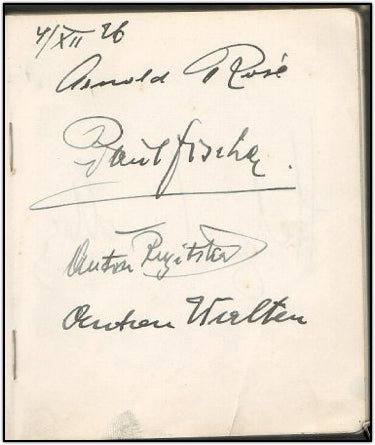 4/XII 26
Arnold Rosé
Paul Fischer.
Anton Ruzitska
Anton Walter